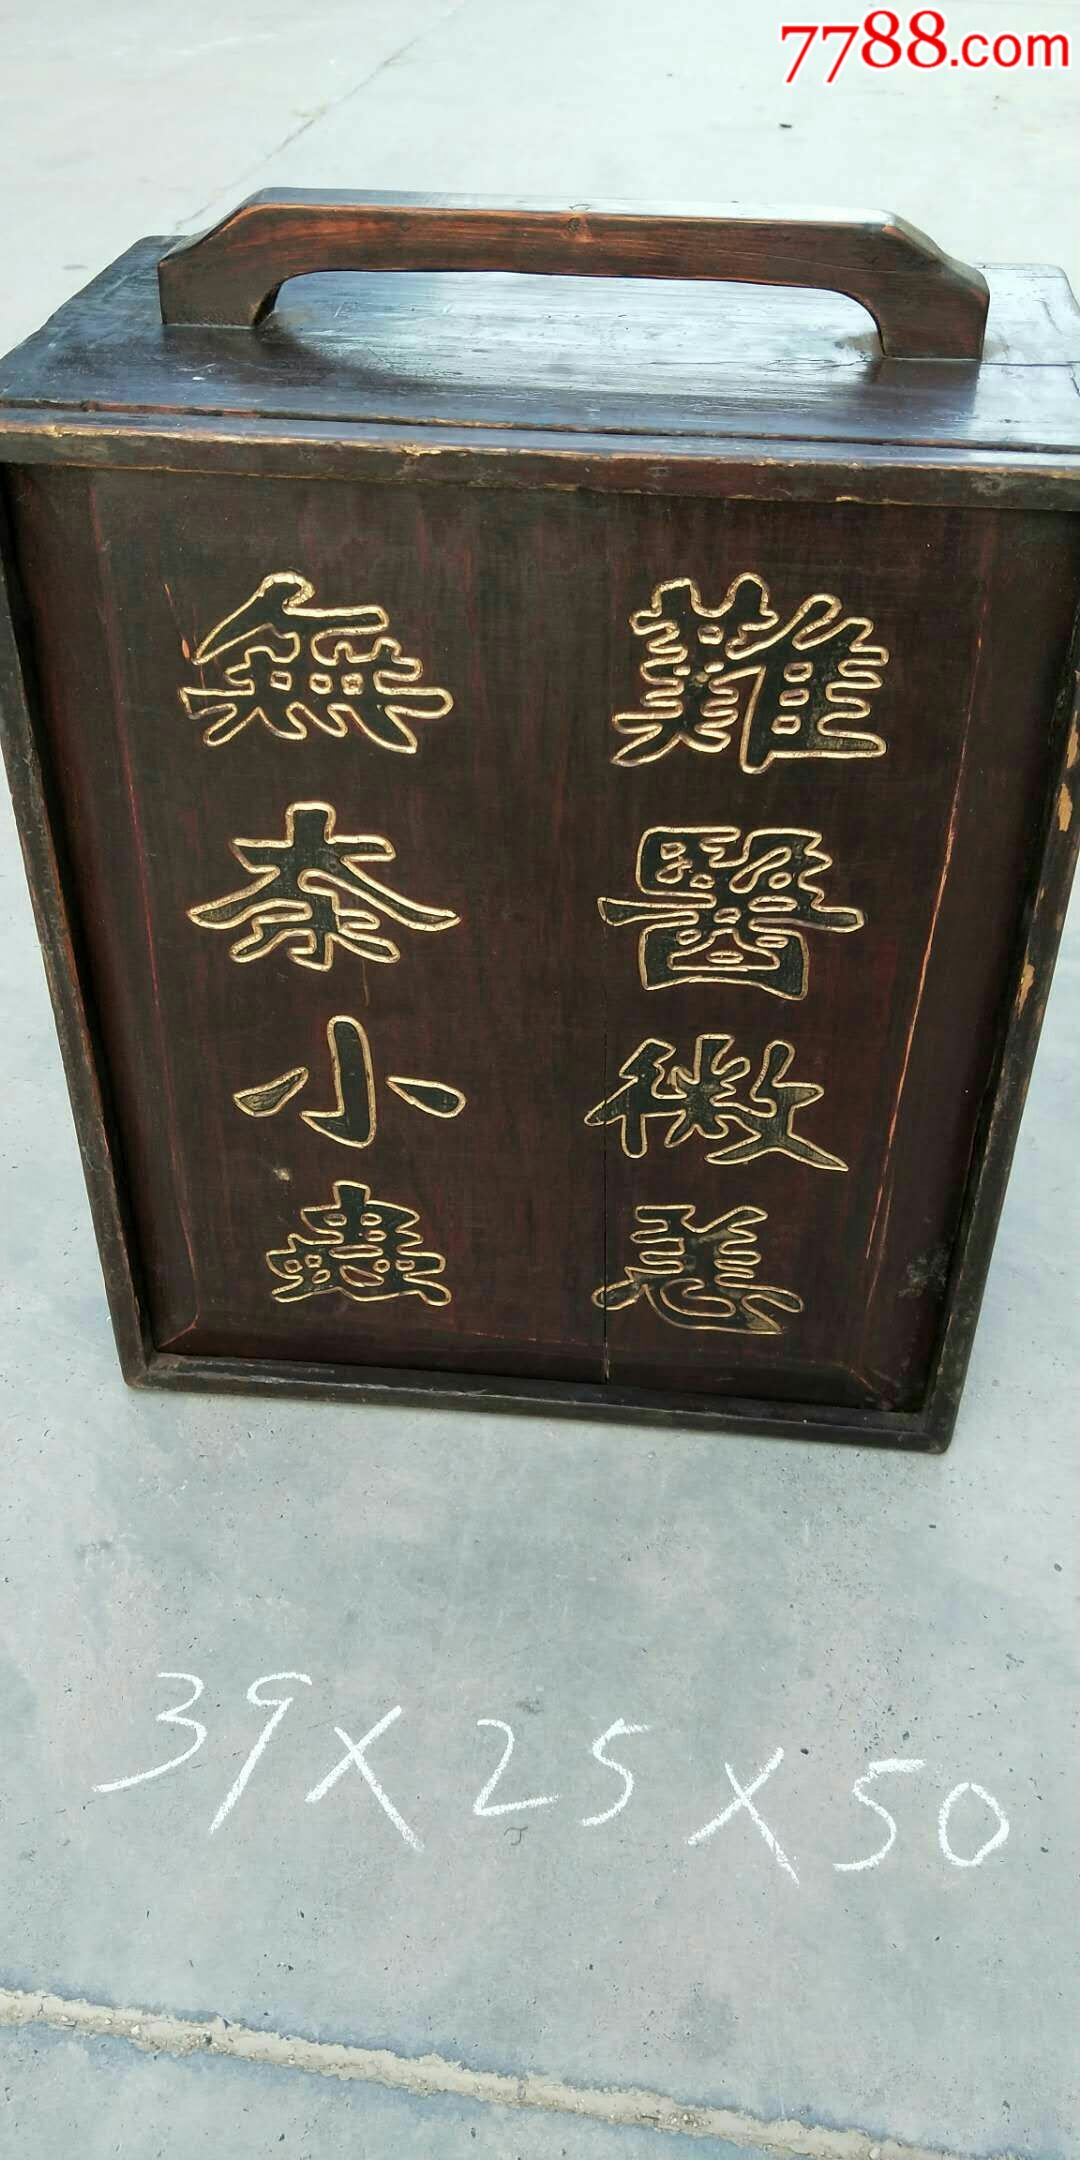 7788.com
難醫微恙
無奈小蟲
39X25X50